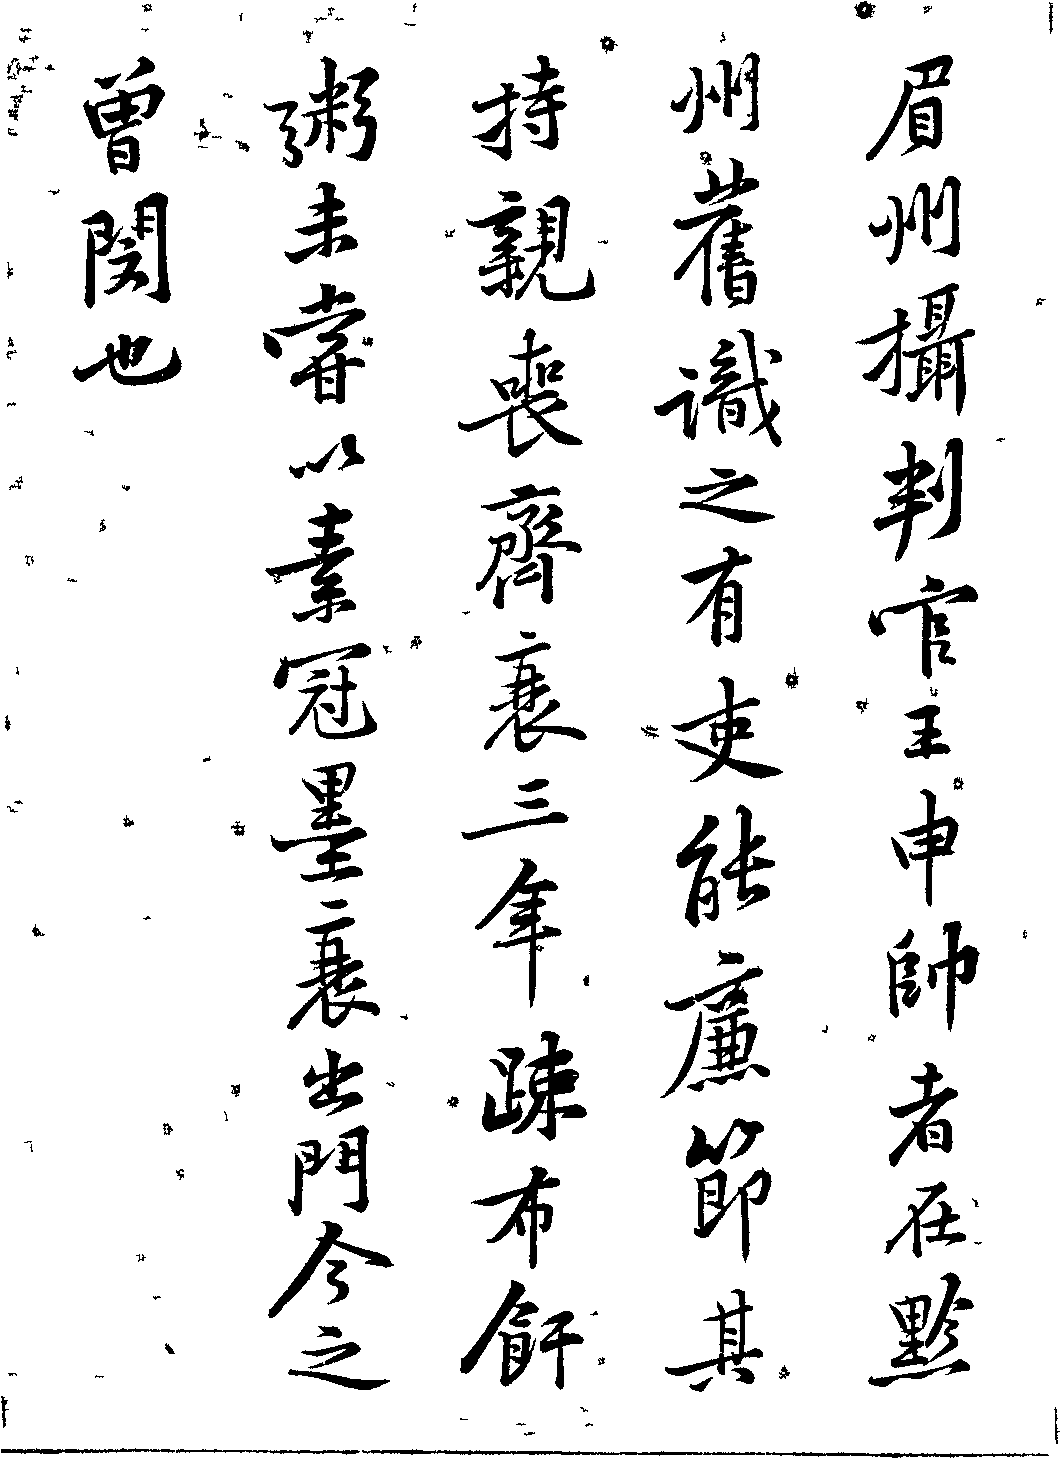 眉州攝判官王申帥者在黔
州舊識之有吏能廉節其
持親喪齊衰三年疎布飦
粥未嘗以素冠墨衰出門今之
曾閔也